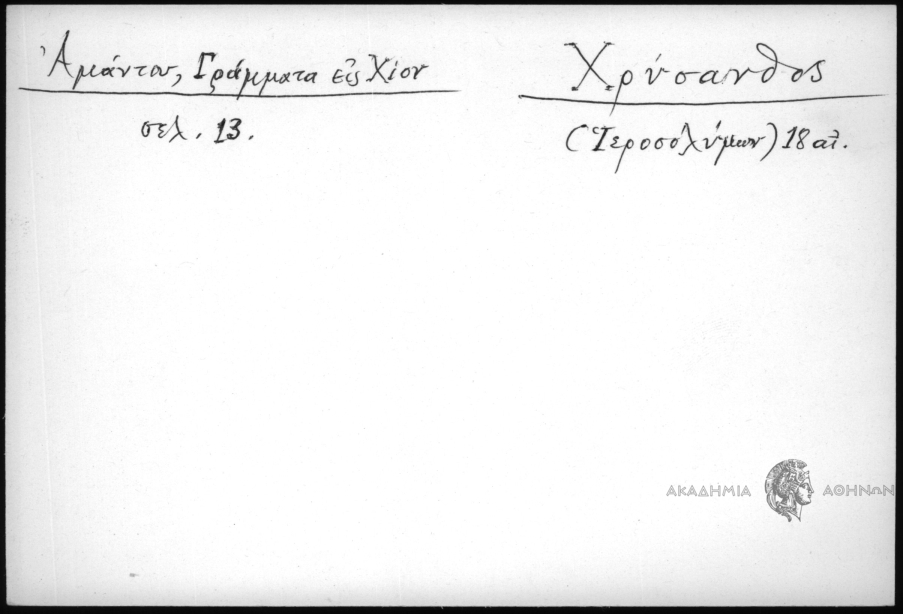 Ἀμάντου, Γράμματα εἰς Χίον
σελ. 13.
Χρύσανθος
(Ἱεροσολύμων) 18 αἰ.
ΑΚΑΔΗΜΙΑ ΑΘΗΝΩΝ